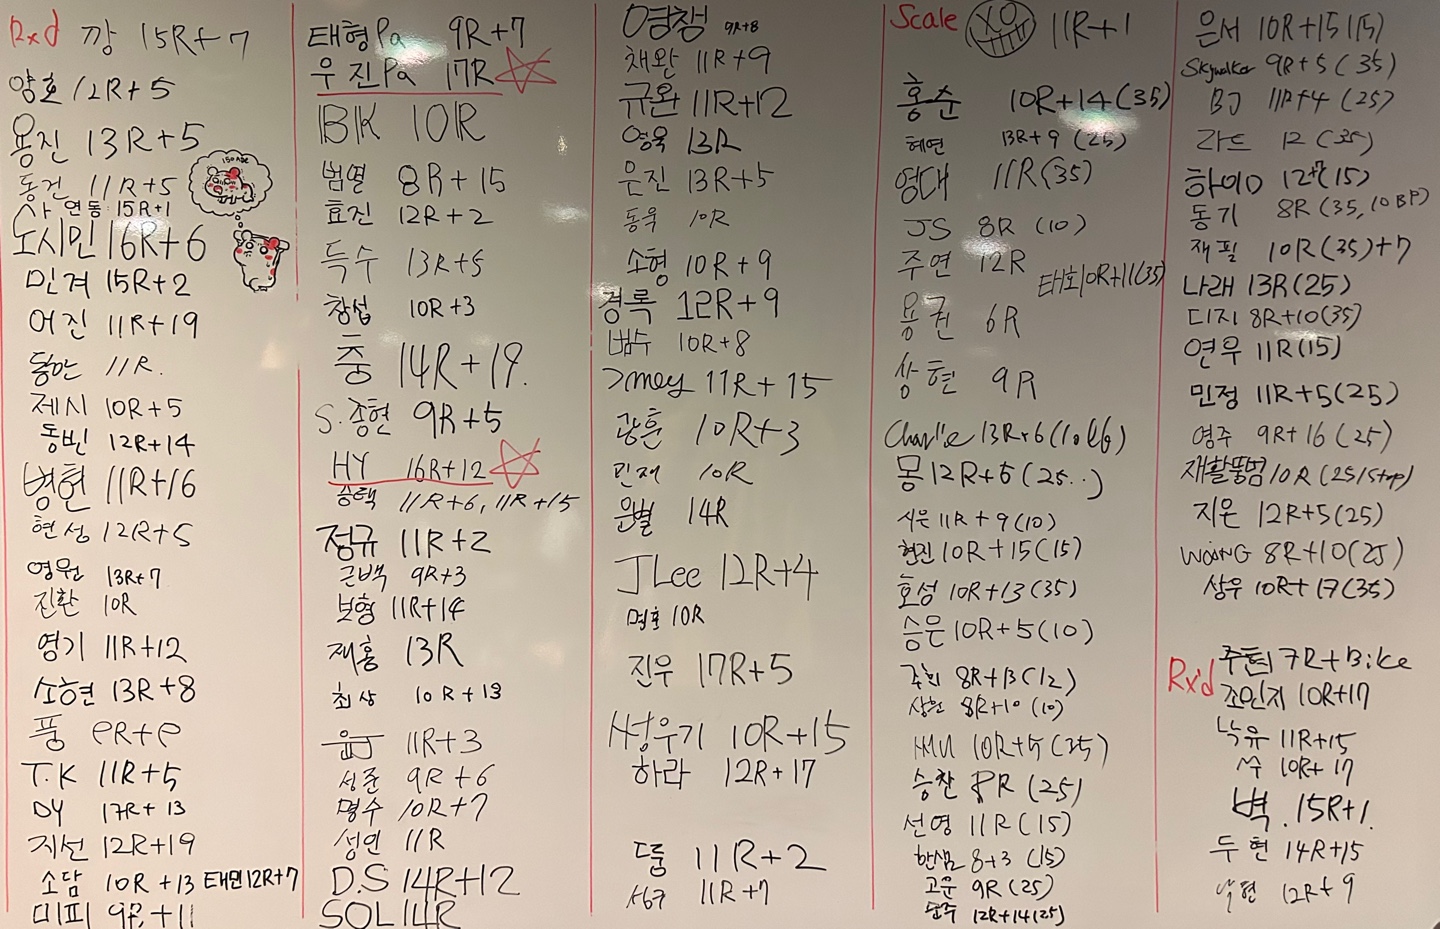 Rxd 깡 15R+7
양호 12R+5
용진 13R+5
150 ABC
동건 11R+5
사 연동 15R+1
노시민 16R+6
민겨 15R+2
어진 11R+19
동한 11R.
제시 10R+5
동빈 12R+14
병현 11R+16
현성 12R+5
영원 13R+7
진환 10R
영기 11R+12
소현 13R+8
풍
T.K 11R+5
DY 17R+13
지선 12R+19
소담 10R+13 태민 12R+7
미피 9R+11
태형Pa 9R+7
우진Pa 17R
BK 10R
범열 8R+15
효진 12R+2
득수 13R+5
창섭 10R+3
중 14R+19.
S.종현 9R+5
HY 16R+12
승택 11R+6, 11R+15
정규 11R+2
근백 9R+3
보형 11R+14
재홍 13R
최상 10R+13
윤J 11R+3
성준 9R+6
명수 10R+7
성연 11R
D.S 14R+12
SOL 14R
영챔 9R+8
채완 11R+9
규완 11R+12
영욱 13R
은진 13R+5
동우 10R
소형 10R+9
경록 12R+9
범수 10R+8
11R+15
광훈 10R+3
민재 10R
은별 14R
JLee 12R+4
명호 10R
진우 17R+5
성우기 10R+15
하라 12R+17
둠 11R+2
11R+7
Scale XO 11R+1
홍순 10R+14(35)
혜연 13R+9 (25)
영대 11R(35)
JS 8R (10)
주연 12R
태희 10R+11(35)
용권 6R
상현 9R
Charlie 13R+6(10kg)
몽 12R+5(25..)
시은 11R+9(10)
현진 10R+15(15)
호성 10R+13(35)
승은 10R+5(10)
주희 8R+13(12)
상현 8R+10(10)
10R+5(25)
승찬 8R (25)
선영 11R(15)
한샘 8+3 (15)
고운 9R(25)
12R+14(25)
은서 10R+15(15)
Skywalker 9R+5(35)
BJ 11R+4 (25)
라드 12 (35)
하이D 12+7(15)
동기 8R (35, 10BP)
재필 10R(35)+7
나래 13R(25)
디지 8R+10(35)
연우 11R(15)
민정 11R+5(25)
영주 9R+16 (25)
재활뚱범 10R (25/step)
지은 12R+5(25)
WOONG 8R+10(25)
상우 10R+17(35)
Rx'd 주현 7R+Bike
조인지 10R+17
낙유 11R+15
10R+17
벽. 15R+1.
두현 14R+15
12R+9